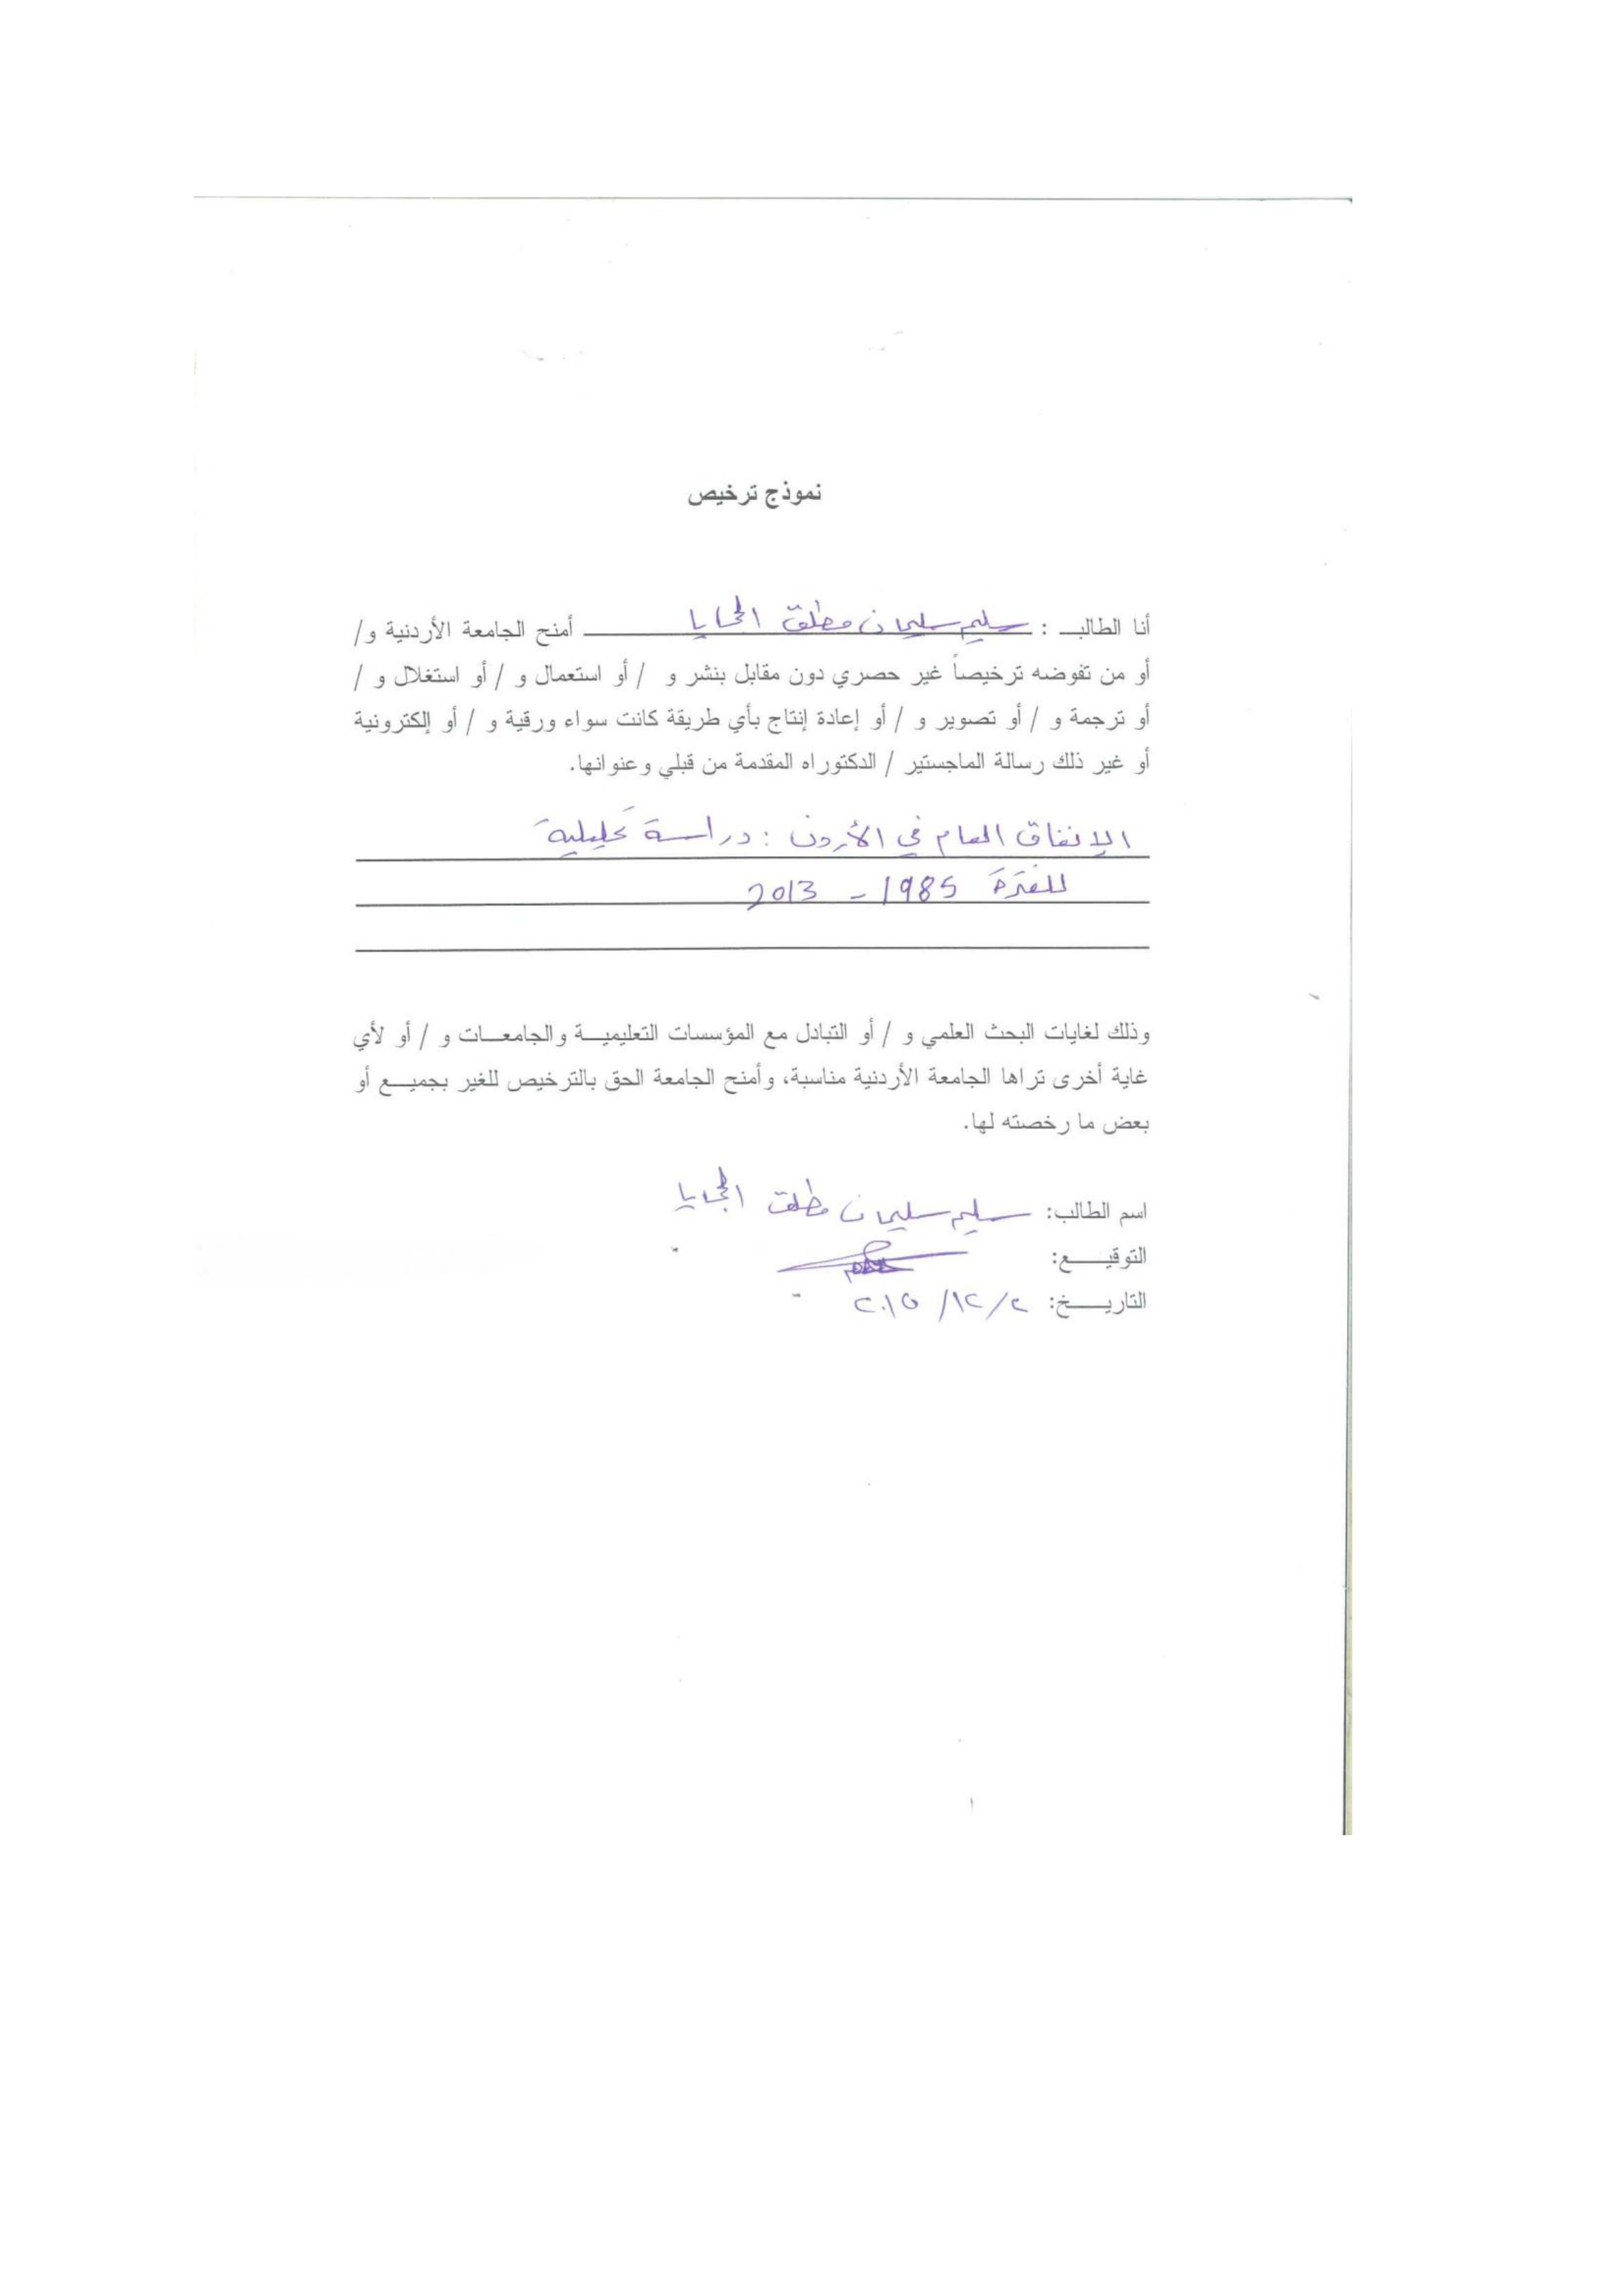 نموذج ترخيص
أنا الطالب : سليم سليمان مطلق الحجايا أمنح الجامعة الأردنية و/
أو من تفوضه ترخيصاً غير حصري دون مقابل بنشر و / أو استعمال و / أو استغلال و /
أو ترجمة و / أو تصوير و / أو إعادة إنتاج بأي طريقة كانت سواء ورقية و / أو إلكترونية
أو غير ذلك رسالة الماجستير / الدكتوراه المقدمة من قبلي وعنوانها.
الإنفاق العام في الأردن : دراسة تحليلية
للفترة 1985 - 2013
وذلك لغايات البحث العلمي و / أو التبادل مع المؤسسات التعليمية والجامعات و / أو لأي
غاية أخرى تراها الجامعة الأردنية مناسبة، وأمنح الجامعة الحق بالترخيص للغير بجميع أو
بعض ما رخصته لها.
اسم الطالب: سليم سليمان مطلق الحجايا
التوقيع:
التاريخ: ٢/١٢/٢٠١٥